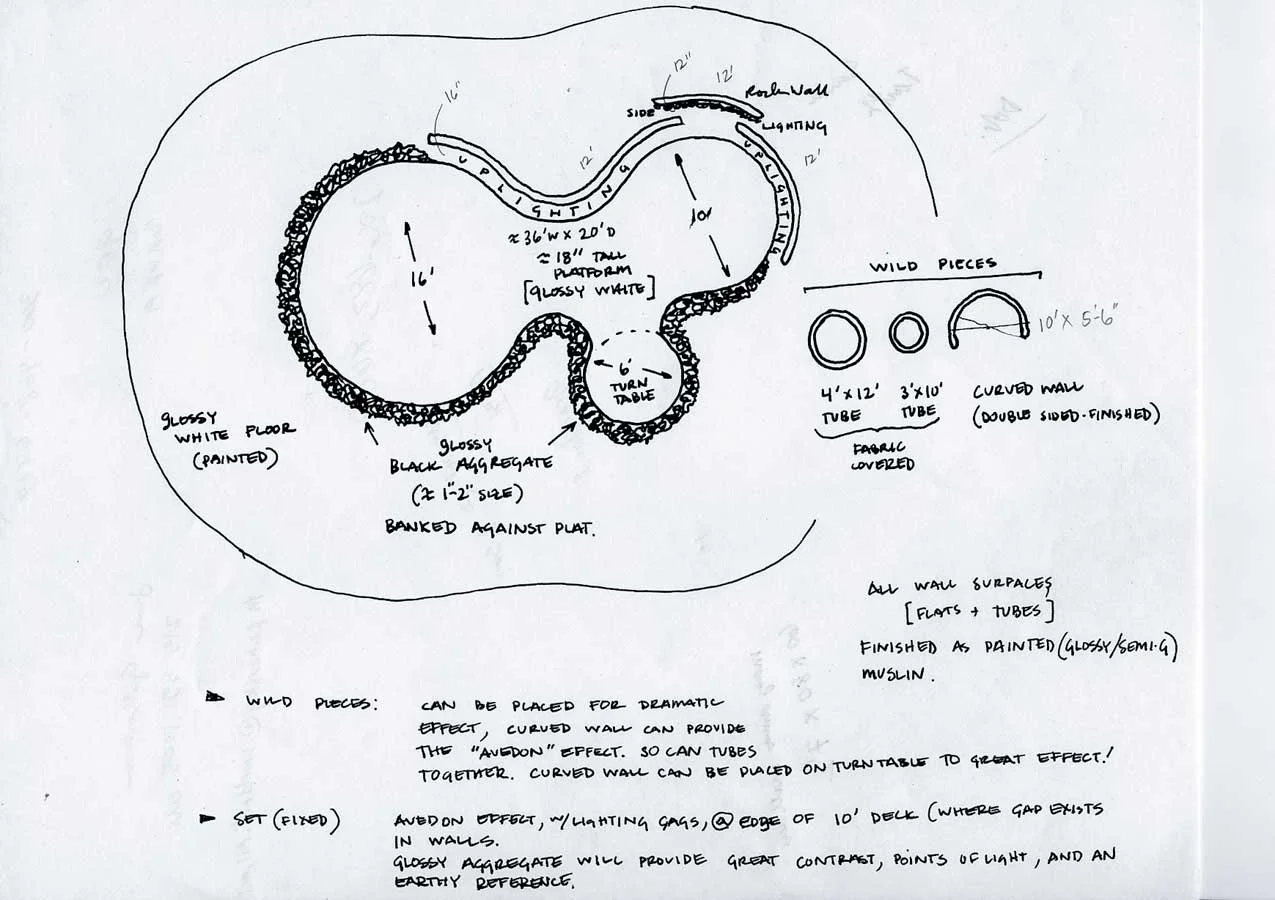 12"
12'
Rock Wall
SIDE
LIGHTING
16"
12'
12'
UPLIGHTING
UPLIGHTING
10'
≈ 36'W X 20'D
≈ 18" TALL
PLATFORM
[GLOSSY WHITE]
16'
6'
TURN
TABLE
WILD PIECES
10' X 5'-6"
4' X 12'
TUBE
3' X 10'
TUBE
FABRIC
COVERED
CURVED WALL
(DOUBLE SIDED-FINISHED)
GLOSSY
WHITE FLOOR
(PAINTED)
GLOSSY
BLACK AGGREGATE
(≈ 1"-2" SIZE)
BANKED AGAINST PLAT.
ALL WALL SURFACES
[FLATS + TUBES]
FINISHED AS PAINTED (GLOSSY/SEMI-G)
MUSLIN.
WILD PIECES: CAN BE PLACED FOR DRAMATIC
EFFECT, CURVED WALL CAN PROVIDE
THE "AVEDON" EFFECT. SO CAN TUBES
TOGETHER. CURVED WALL CAN BE PLACED ON TURNTABLE TO GREAT EFFECT!
SET (FIXED) AVEDON EFFECT, W/LIGHTING GAGS, @ EDGE OF 10' DECK (WHERE GAP EXISTS
IN WALLS.
GLOSSY AGGREGATE WILL PROVIDE GREAT CONTRAST, POINTS OF LIGHT, AND AN
EARTHY REFERENCE.